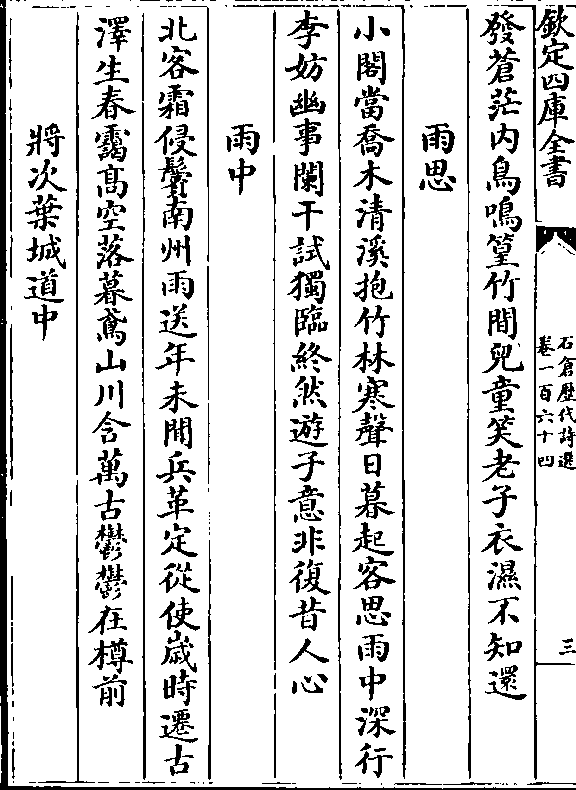 欽定四庫全書
石倉歴代詩選
卷一百六十四
三
發蒼茫内鳥鳴篁竹間兒童笑老子衣濕不知還
雨思
小閣當喬木清溪抱竹林寒聲日暮起客思雨中深行
李妨幽事闌干試獨臨終然遊子意非復昔人心
雨中
北客霜侵鬢南州雨送年未聞兵革定從使歲時遷古
澤生春靄髙空落暮鳶山川含萬古鬱鬱在樽前
將次葉城道中